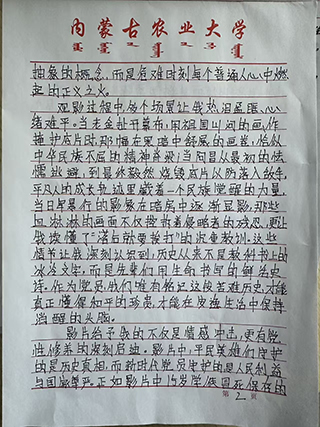 内蒙古农业大学
抽象的概念，而是危难时刻每个普通人心中燃
起的正义之火。
观影过程中多个场景让我热泪盈眶、心
绪难平。当老金扯开幕布，用祖国山河的画作
掩护底片时，那幅在黑暗中舒展的画卷，恰似
中华民族不屈的精神脊梁；当阿昌从最初的怯
懦逃避，到最终毅然烧镜底片以防落入敌手，
平凡人的成长轨迹里藏着一个民族觉醒的力量，
当日军暴行的影像在暗房中逐渐显影，那些
血淋淋的画面不仅控诉着侵略者的残忍，更让
我读懂了“落后就要挨打”的沉重教训。这些
情节让我深刻认识到，历史从来不是教科书上的
冰冷文字，而是先辈们用生命书写的鲜活史
诗。作为党员，我们唯有铭记这段苦难历史，才能
真正懂得和平的珍贵，才能在安逸生活中保持
清醒的头脑。
影片给予我的不仅是情感冲击，更有党
性修养的深刻启迪。影片中，平民英雄们守护
的是历史真相，而新时代党员守护的是人民利益
与国家尊严。正如影片中15岁学徒冒死保存的
第2页